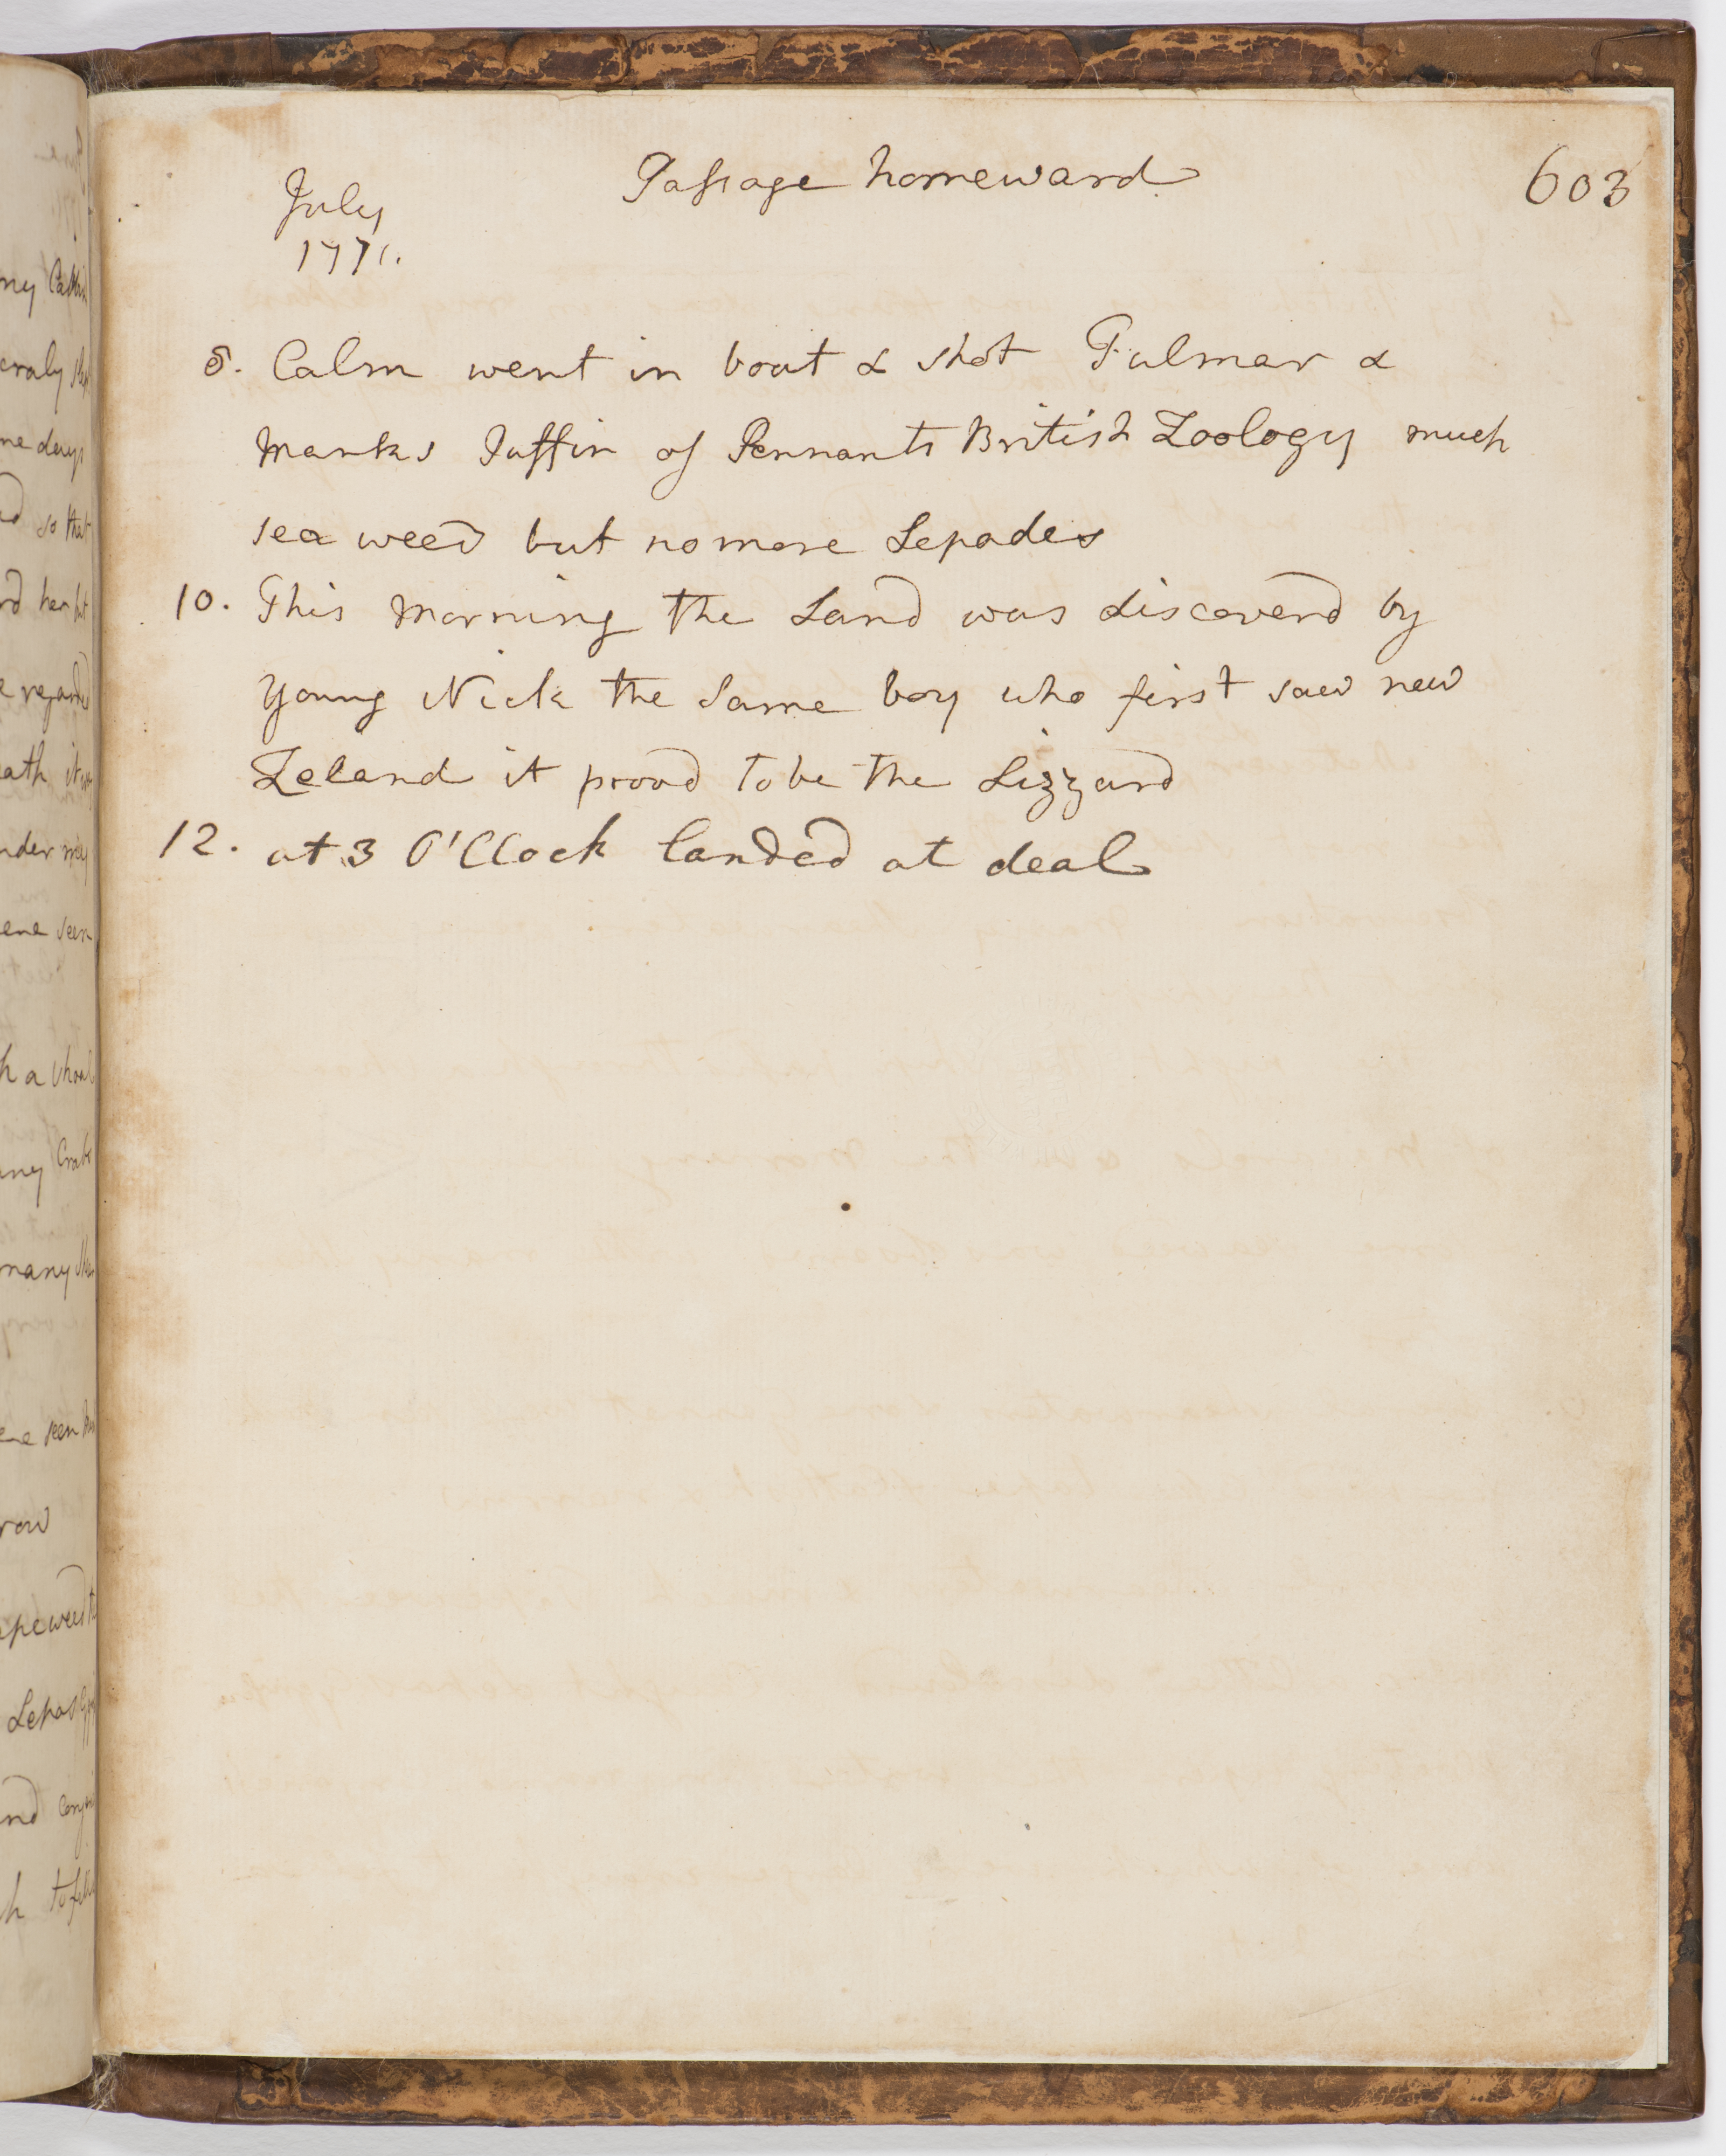 Passage homeward
603
July
1771.
8. Calm went in boat & shot Fulmar &
Manks Puffin of Pennants British Zoology much
sea weed but no more Lepades
10. This morning the Land was discoverd by
Young Nick the same boy who first saw new
Zeland it provd to be the Lizzard
12. at 3 O'Clock landed at deal